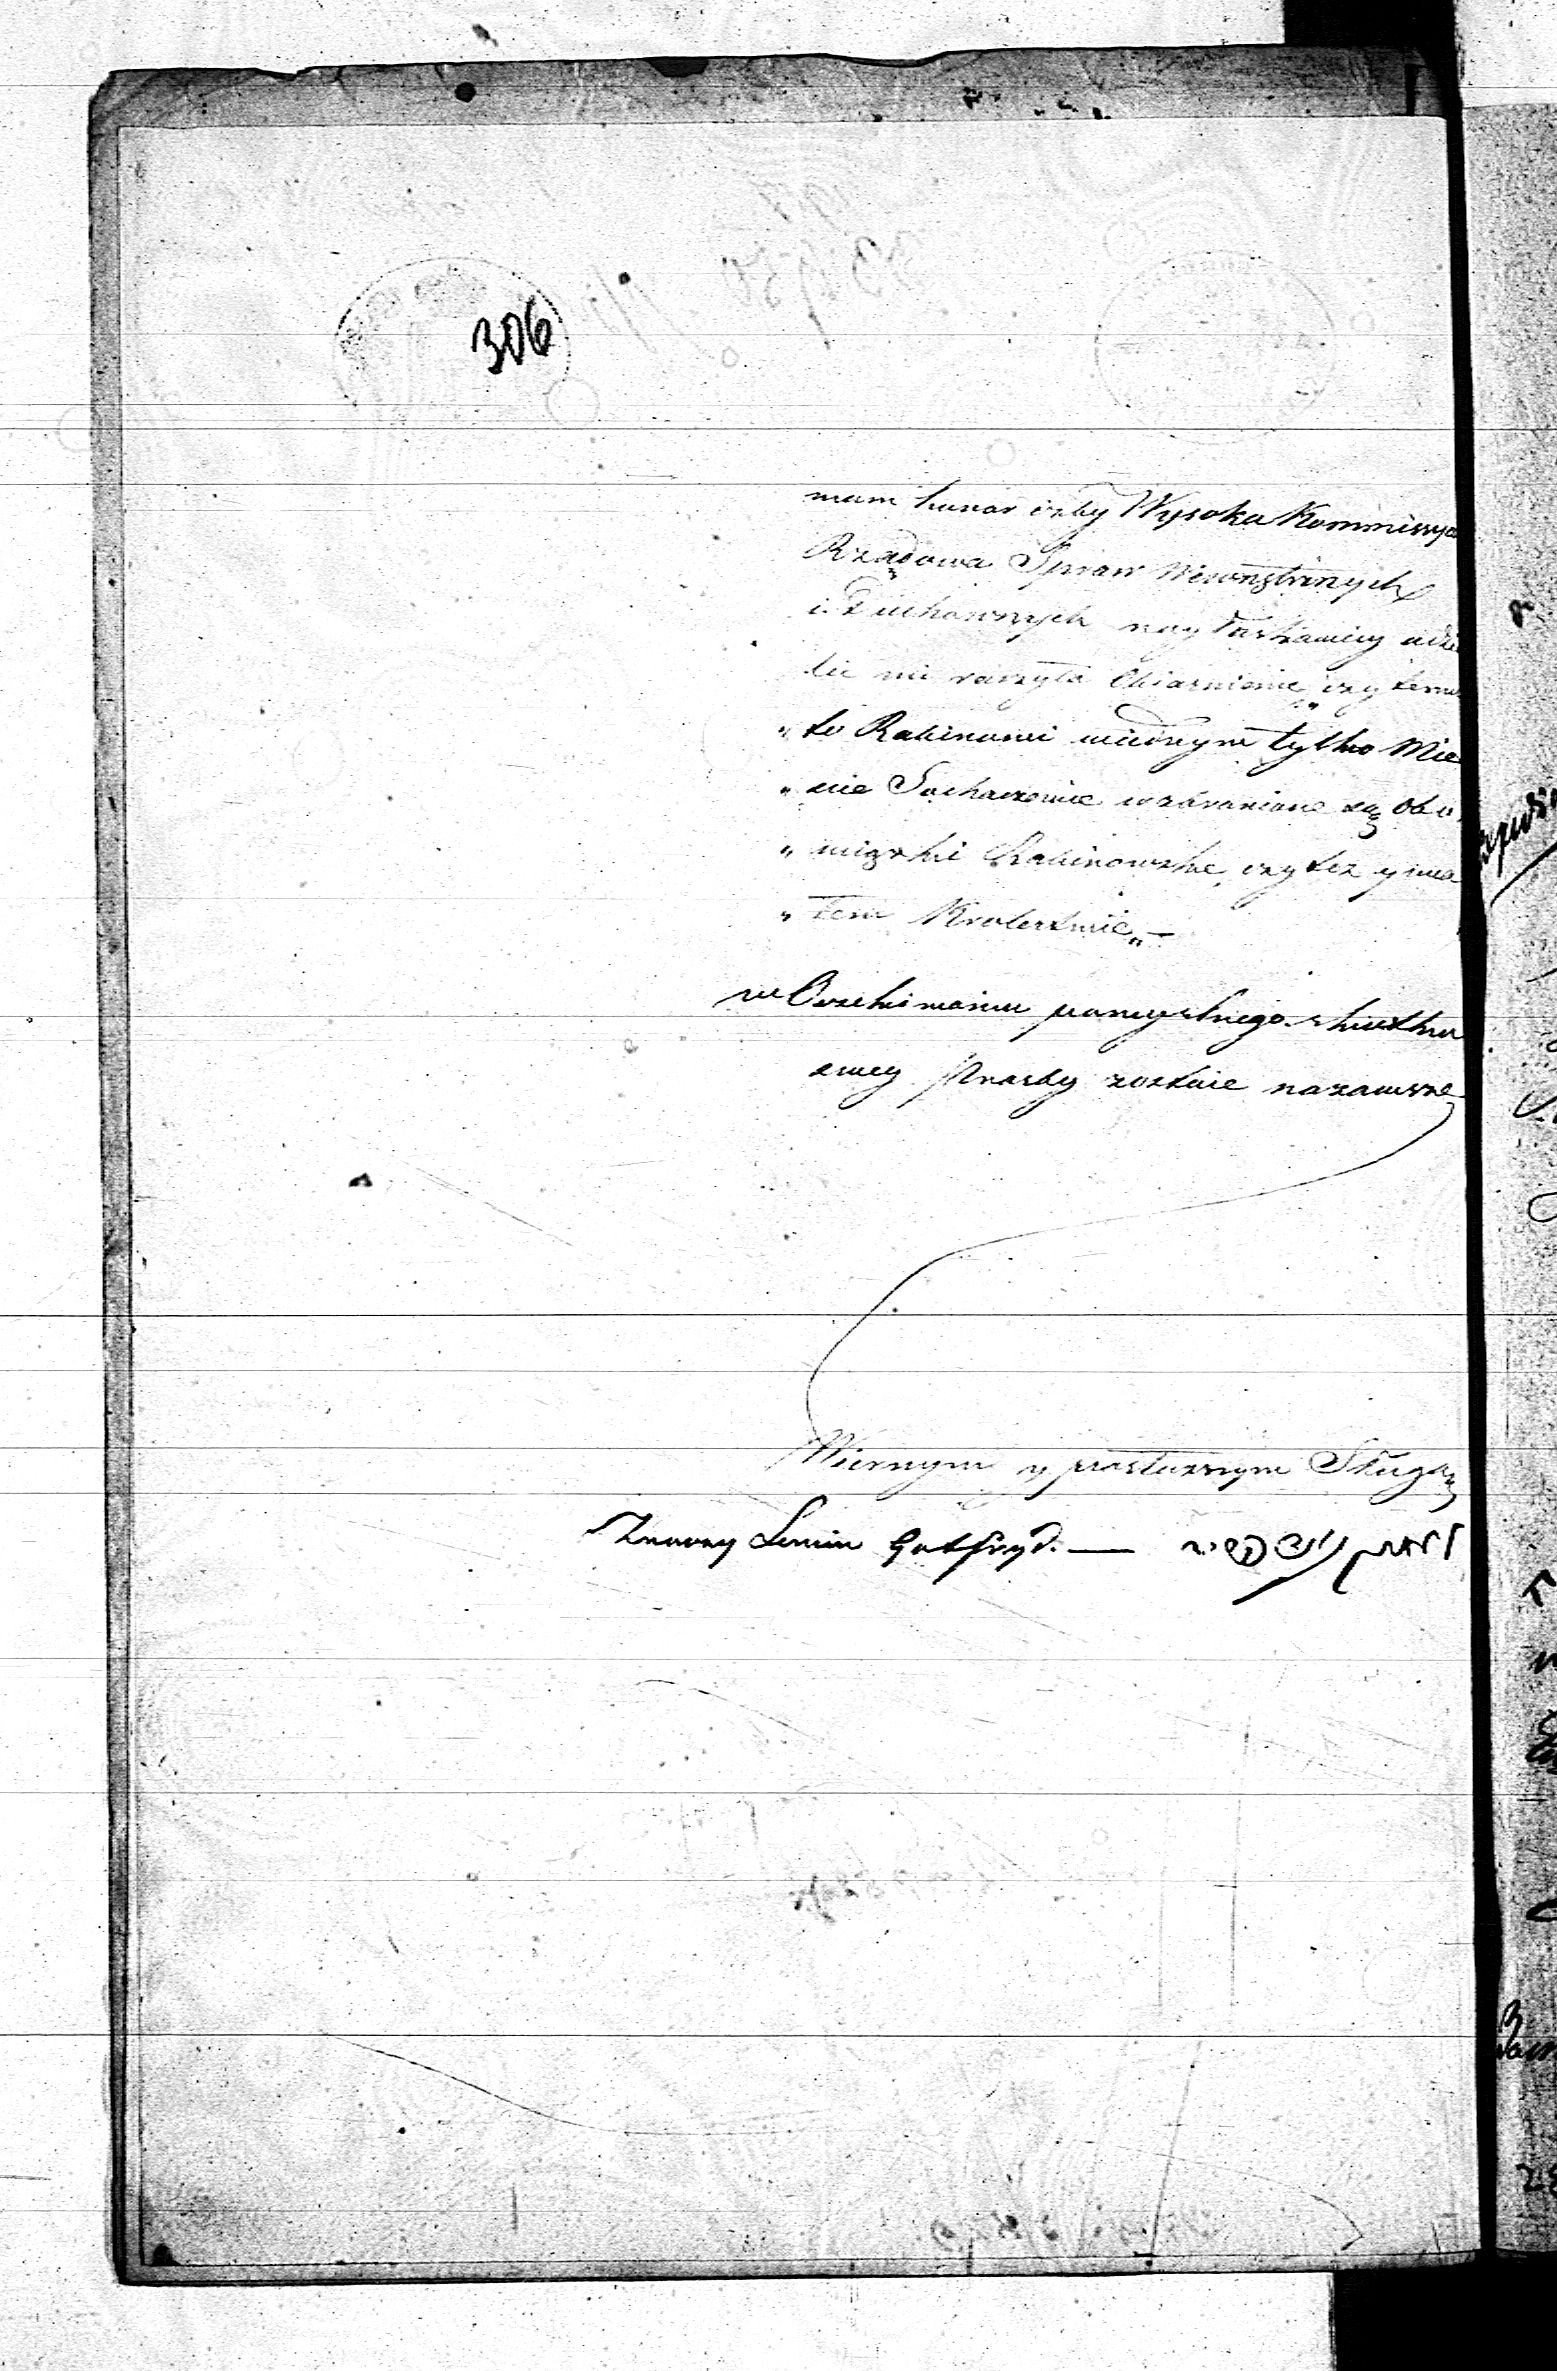 306
mam honor izby Wysoka Kommissya
Rządowa Spraw Wewnętrznych
i Duchownych nay łaskawiey udzie
lic mi raczyła Obiasnienie, czy temu
„ to Rabinowi w iednym tylko Mie
„ scie Sochaczewie wzbronione są Obo
„ wiązki Rabinowskie, czy tez y w ca
„ łem Krolestwie„—
w Oczekiwaniu pomyslnego skutku
swey Prozby zostaie nazawsze
Wiernym y posłusznym Sługą
Lewin Gotfryd. —